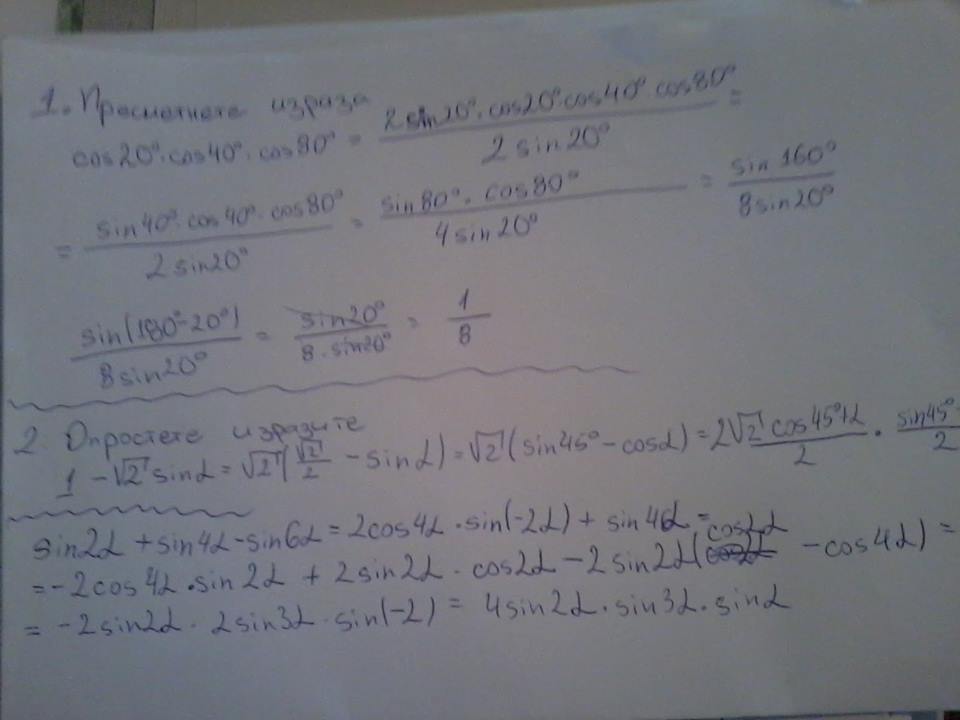 1. Пресметнете израза
cos20°·cos40°·cos80° = 2sin20°·cos20°·cos40°·cos80° / 2sin20° =
= sin40°·cos40°·cos80° / 2sin20° = sin80°·cos80° / 4sin20° = sin160° / 8sin20°
sin(180°-20°) / 8sin20° = sin20° / 8·sin20° = 1 / 8
2. Опростете изразите
1 - √2 sinα = √2(√2/2 - sinα) = √2(sin45° - cosα) = 2√2 cos45°+α / 2 · sin45° / 2
sin2α + sin4α - sin6α = 2cos4α·sin(-2α) + sin4α =
= -2cos4α·sin2α + 2sin2α·cos2α - 2sin2α(cos2α - cos4α) =
= -2sin2α·2sin3α·sin(-2) = 4sin2α·sin3α·sinα